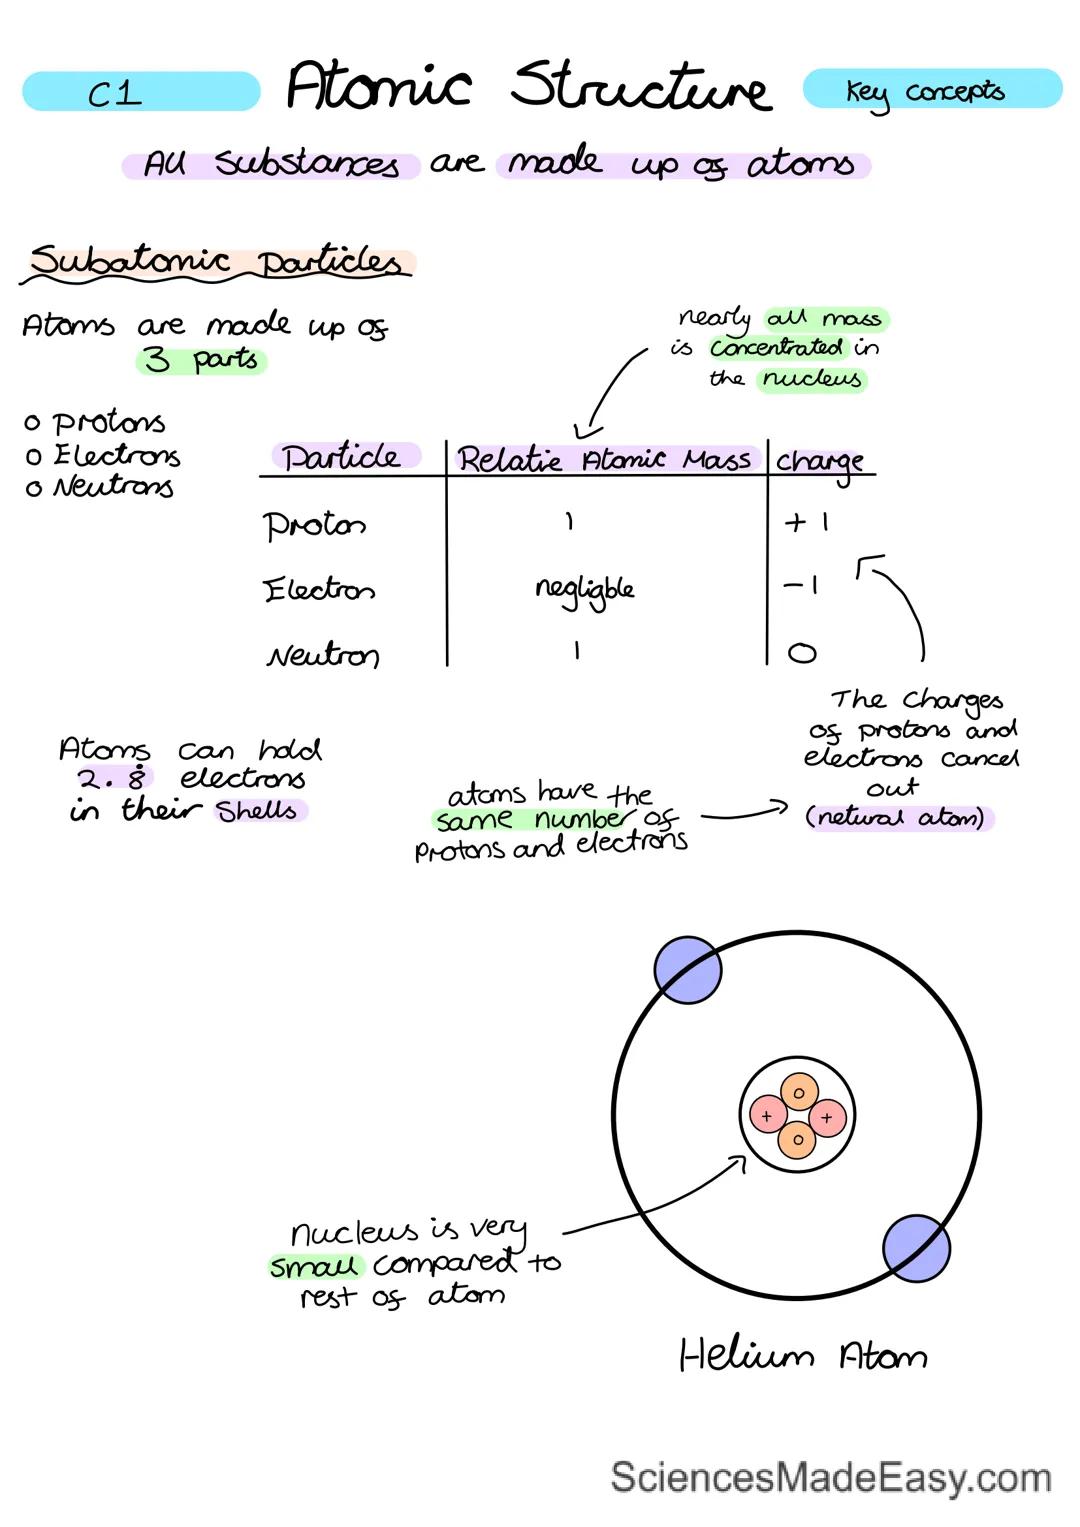 C1
Atomic Structure
Key concepts
All Substances are made up of atoms
Subatomic particles
Atoms are made up of
3 parts
o Protons
o Electrons
o Neutrons
nearly all mass
is concentrated in
the nucleus
Particle Relatie Atomic Mass charge
Proton 1 +1
Electron negligble -1
Neutron 1 0
The charges
of protons and
electrons cancel
out
(netural atom)
Atoms can hold
2.8 electrons
in their shells
atoms have the
same number of
protons and electrons
+
o
+
o
nucleus is very
small compared to
rest of atom
Helium Atom
SciencesMadeEasy.com